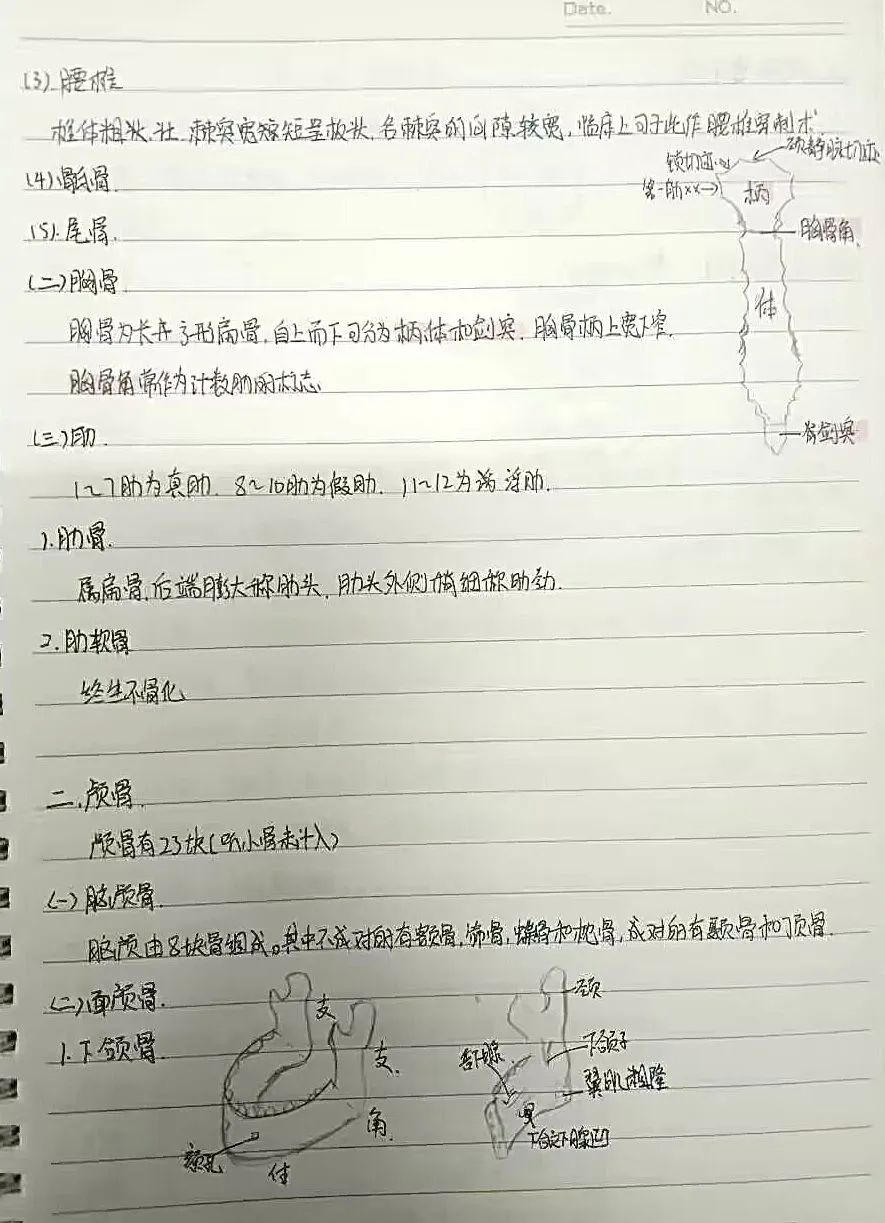 Date. NO.
(3) 腰椎
椎体粗状.壮 棘突宽短呈板状,各棘突的间隙较宽,临床上可于此作腰椎穿刺术.
锁切迹 颈静脉切迹
(4) 骶骨.
第一肋 柄
(5). 尾骨.
胸骨角.
(二) 胸骨
体
胸骨为长方形扁骨,自上而下可分为柄.体和剑突. 胸骨柄上宽下窄.
胸骨角常作为计数肋的标志
(三) 肋.
剑突
1~7肋为真肋. 8~10肋为假肋. 11~12为 浮肋.
1. 肋骨.
属扁骨,后端膨大称肋头, 肋头外侧稍细称肋劲.
2. 肋软骨
终生不骨化
二. 颅骨.
颅骨有23块(听小骨未计入)
(一) 脑颅骨.
脑颅由8块骨组成。其中不成对的有额骨,筛骨,蝶骨和枕骨,成对的有颞骨和顶骨.
(二) 面颅骨.
支
1. 下颌骨.
支.
舌下腺
下颌孔
翼肌粗隆
角.
下颌下腺凹
颏孔
体